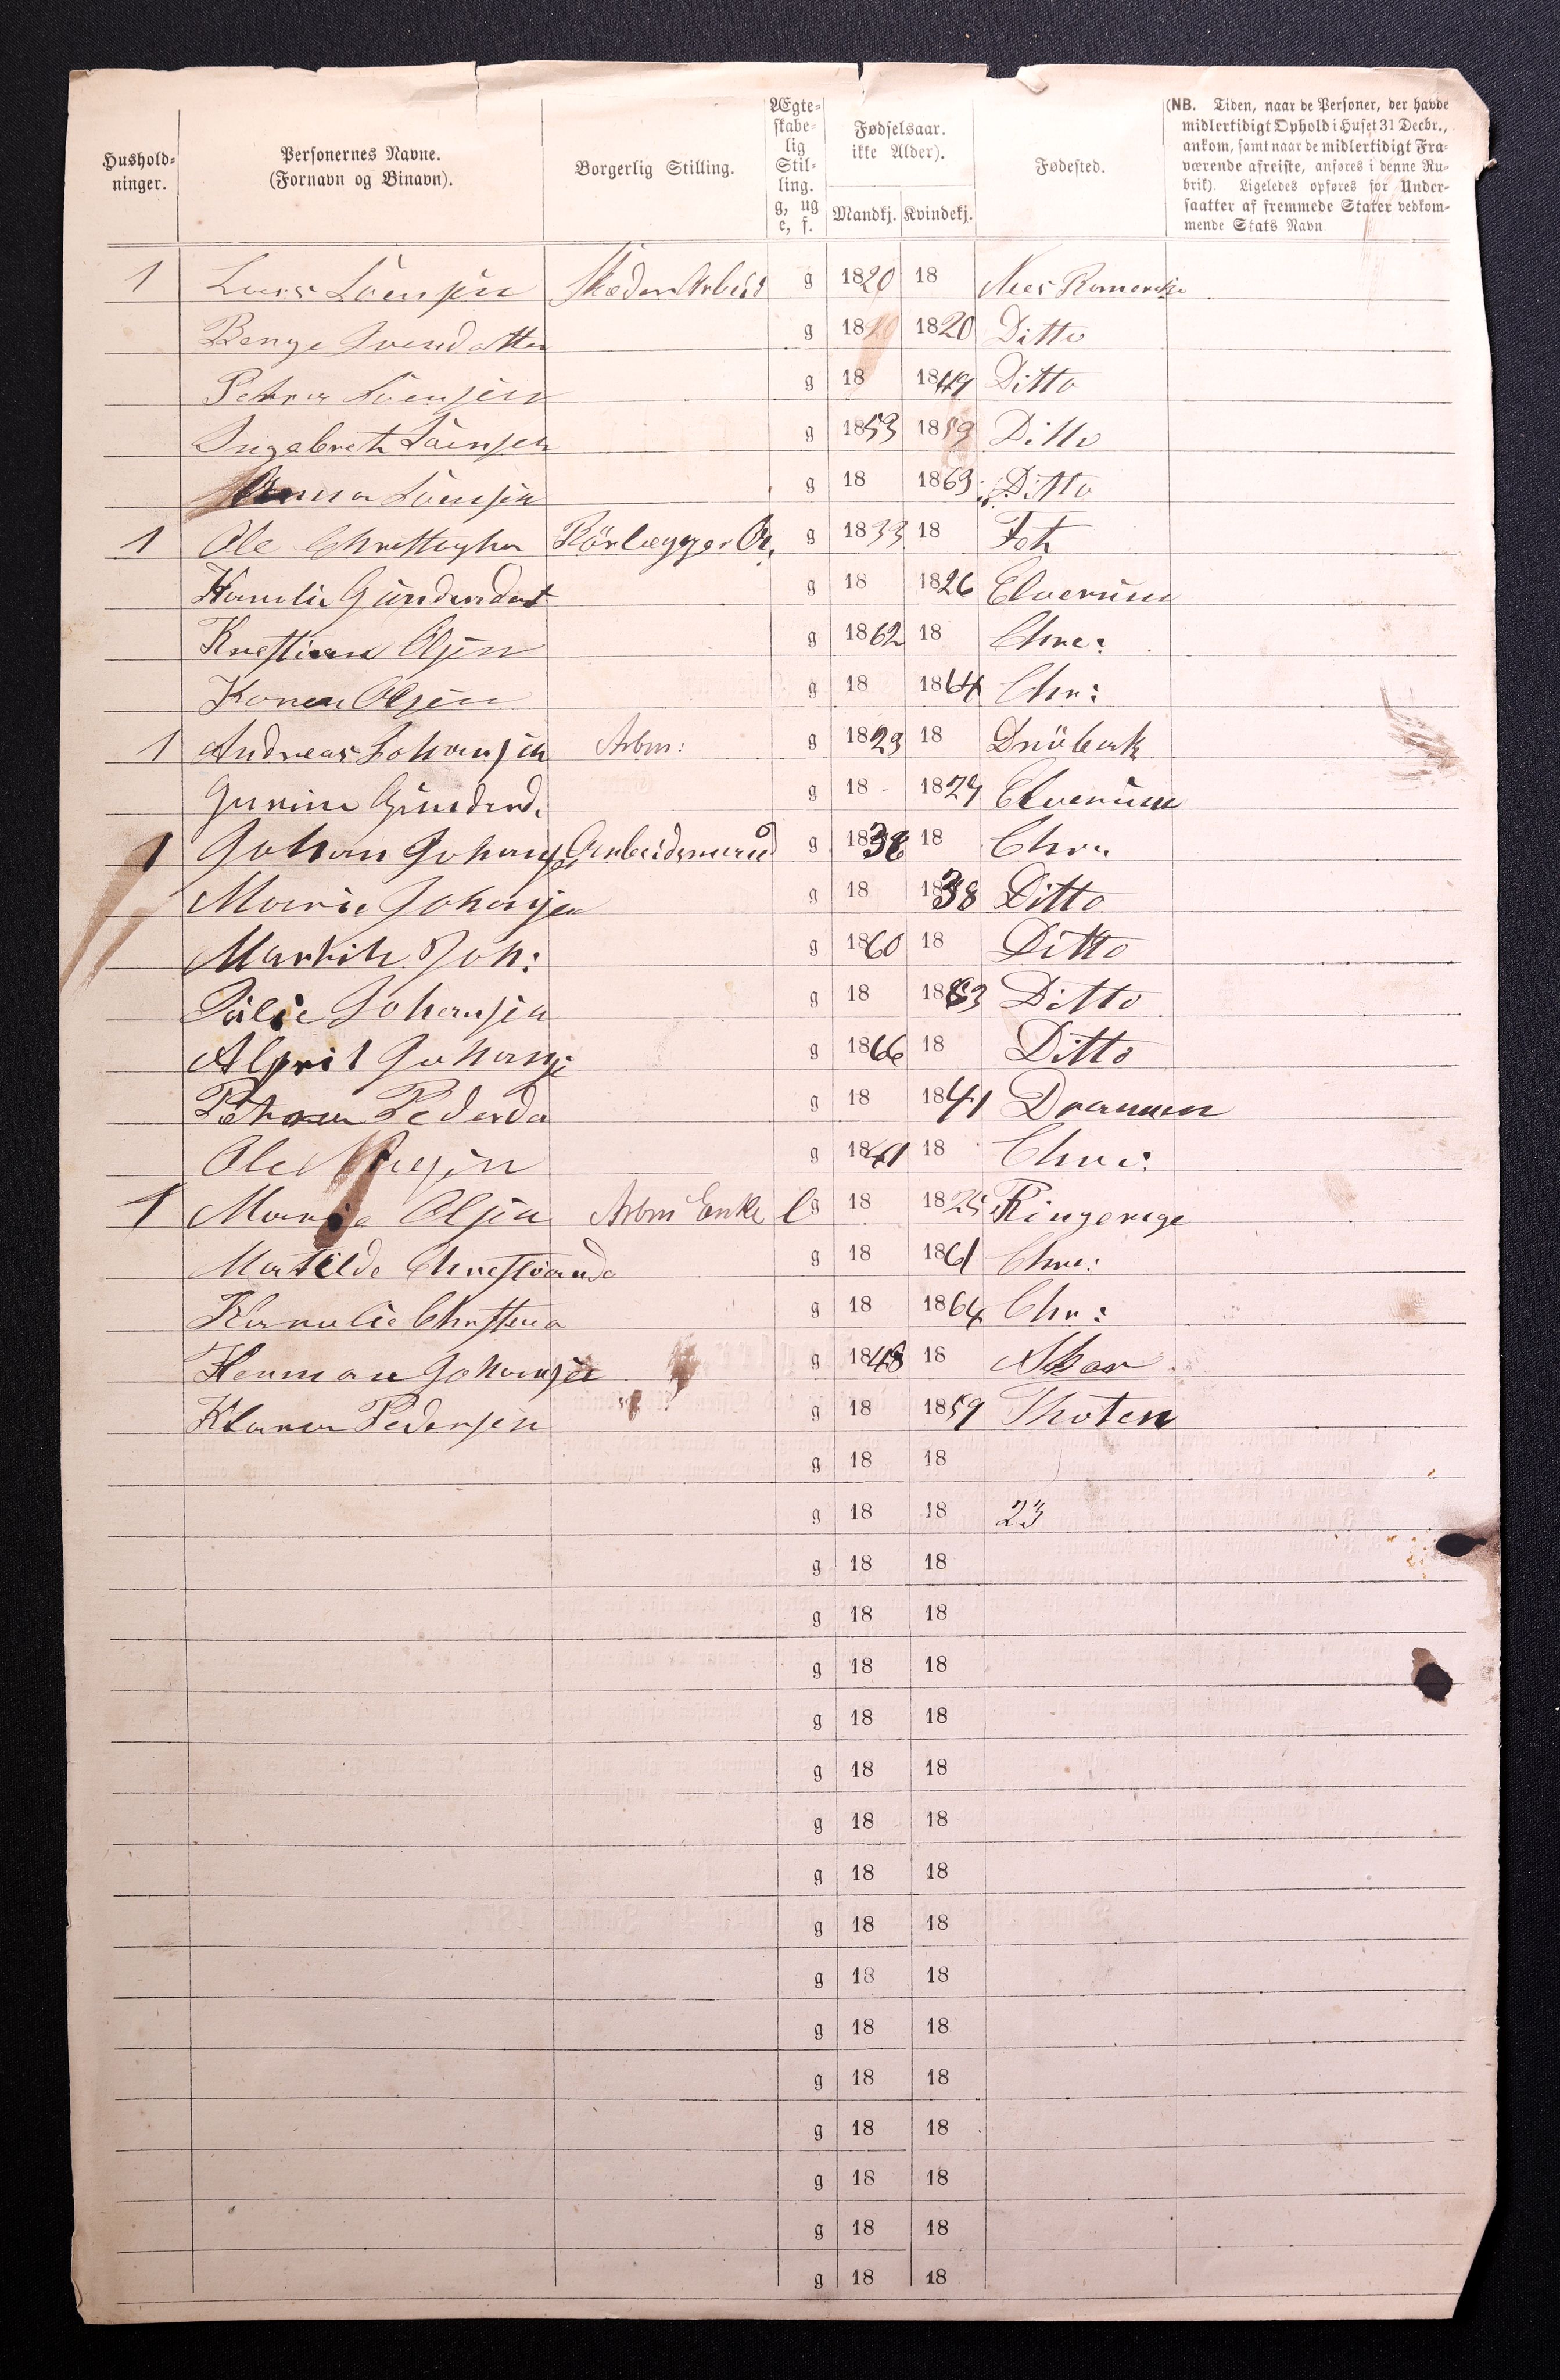 Hushold-
ninger.
Personernes Navne.
(Fornavn og Binavn).
Borgerlig Stilling.
Ægte-
skabe-
lig
Stil-
ling.
g, ug
e, f.
Fødselsaar.
ikke Alder).
Mandkj. Kvindekj.
Fødested.
(NB. Tiden, naar de Personer, der havde
midlertidigt Ophold i Huset 31 Decbr.,
ankom, samt naar de midlertidigt Fra-
værende afreiste, anføres i denne Ru-
brik). Ligeledes opføres for Under-
saatter af fremmede Stater vedkom-
mende Stats Navn.
1 Lars g 1820 18 Nees Romerike
g 18 1820 Ditto
g 18 1849 Ditto
Ingebret g 1853 18 Ditto
Anna g 18 1863 Ditto
1 Ole Rörlægger g 1833 18 Fet
g 18 1826 Elverum
Kristian Olsen g 1862 18 Chre:
Karen Olsen g 18 1864 Chr:
1 Andreas Johansen Arbm: g 1829 18 Dröbak
g 18 18 Elverum
1 Johan Johansen Arbeidsmand g 1838 18 Chr.
Marie Johansen g 18 1838 Ditto
Joh: g 1860 18 Ditto
Johansen g 18 1863 Ditto
g 1866 18 Ditto
Pederda g 18 1841 Dramen
Ole g 1841 18 Chre:
1 Marie Olsen Arbm Enke e g 18 1825 Ringerige
Matilde g 18 1861 Chre:
g 18 1864 Chr:
Herman Johansen g 1848 18
Klara Pedersen g 18 1859 Thoten
g 18 18
g 18 18 23
g 18 18
g 18 18
g 18 18
g 18 18
g 18 18
g 18 18
g 18 18
g 18 18
g 18 18
g 18 18
g 18 18
g 18 18
g 18 18
g 18 18
g 18 18